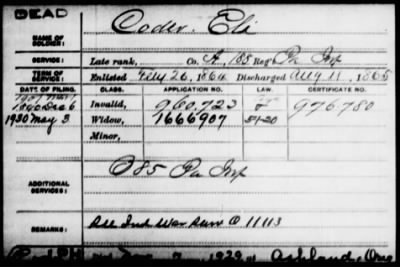 DEAD
NAME OF SOLDIER: Coder. Eli
SERVICE: Late rank, Co. A, 185 Reg't Pa Inf
TERM OF SERVICE: Enlisted Feby 26, 1864 Discharged Aug 11, 1865
DATE OF FILING. CLASS. APPLICATION NO. LAW. CERTIFICATE NO.
1890 Dec 6 Invalid, 960.723 976.780
1930 May 3 Widow, 1666907 5-1-20
Minor,
ADDITIONAL SERVICES: 85 Pa Inf
REMARKS: All Ind War Surv O 11113
1929 at Ashland, Ore